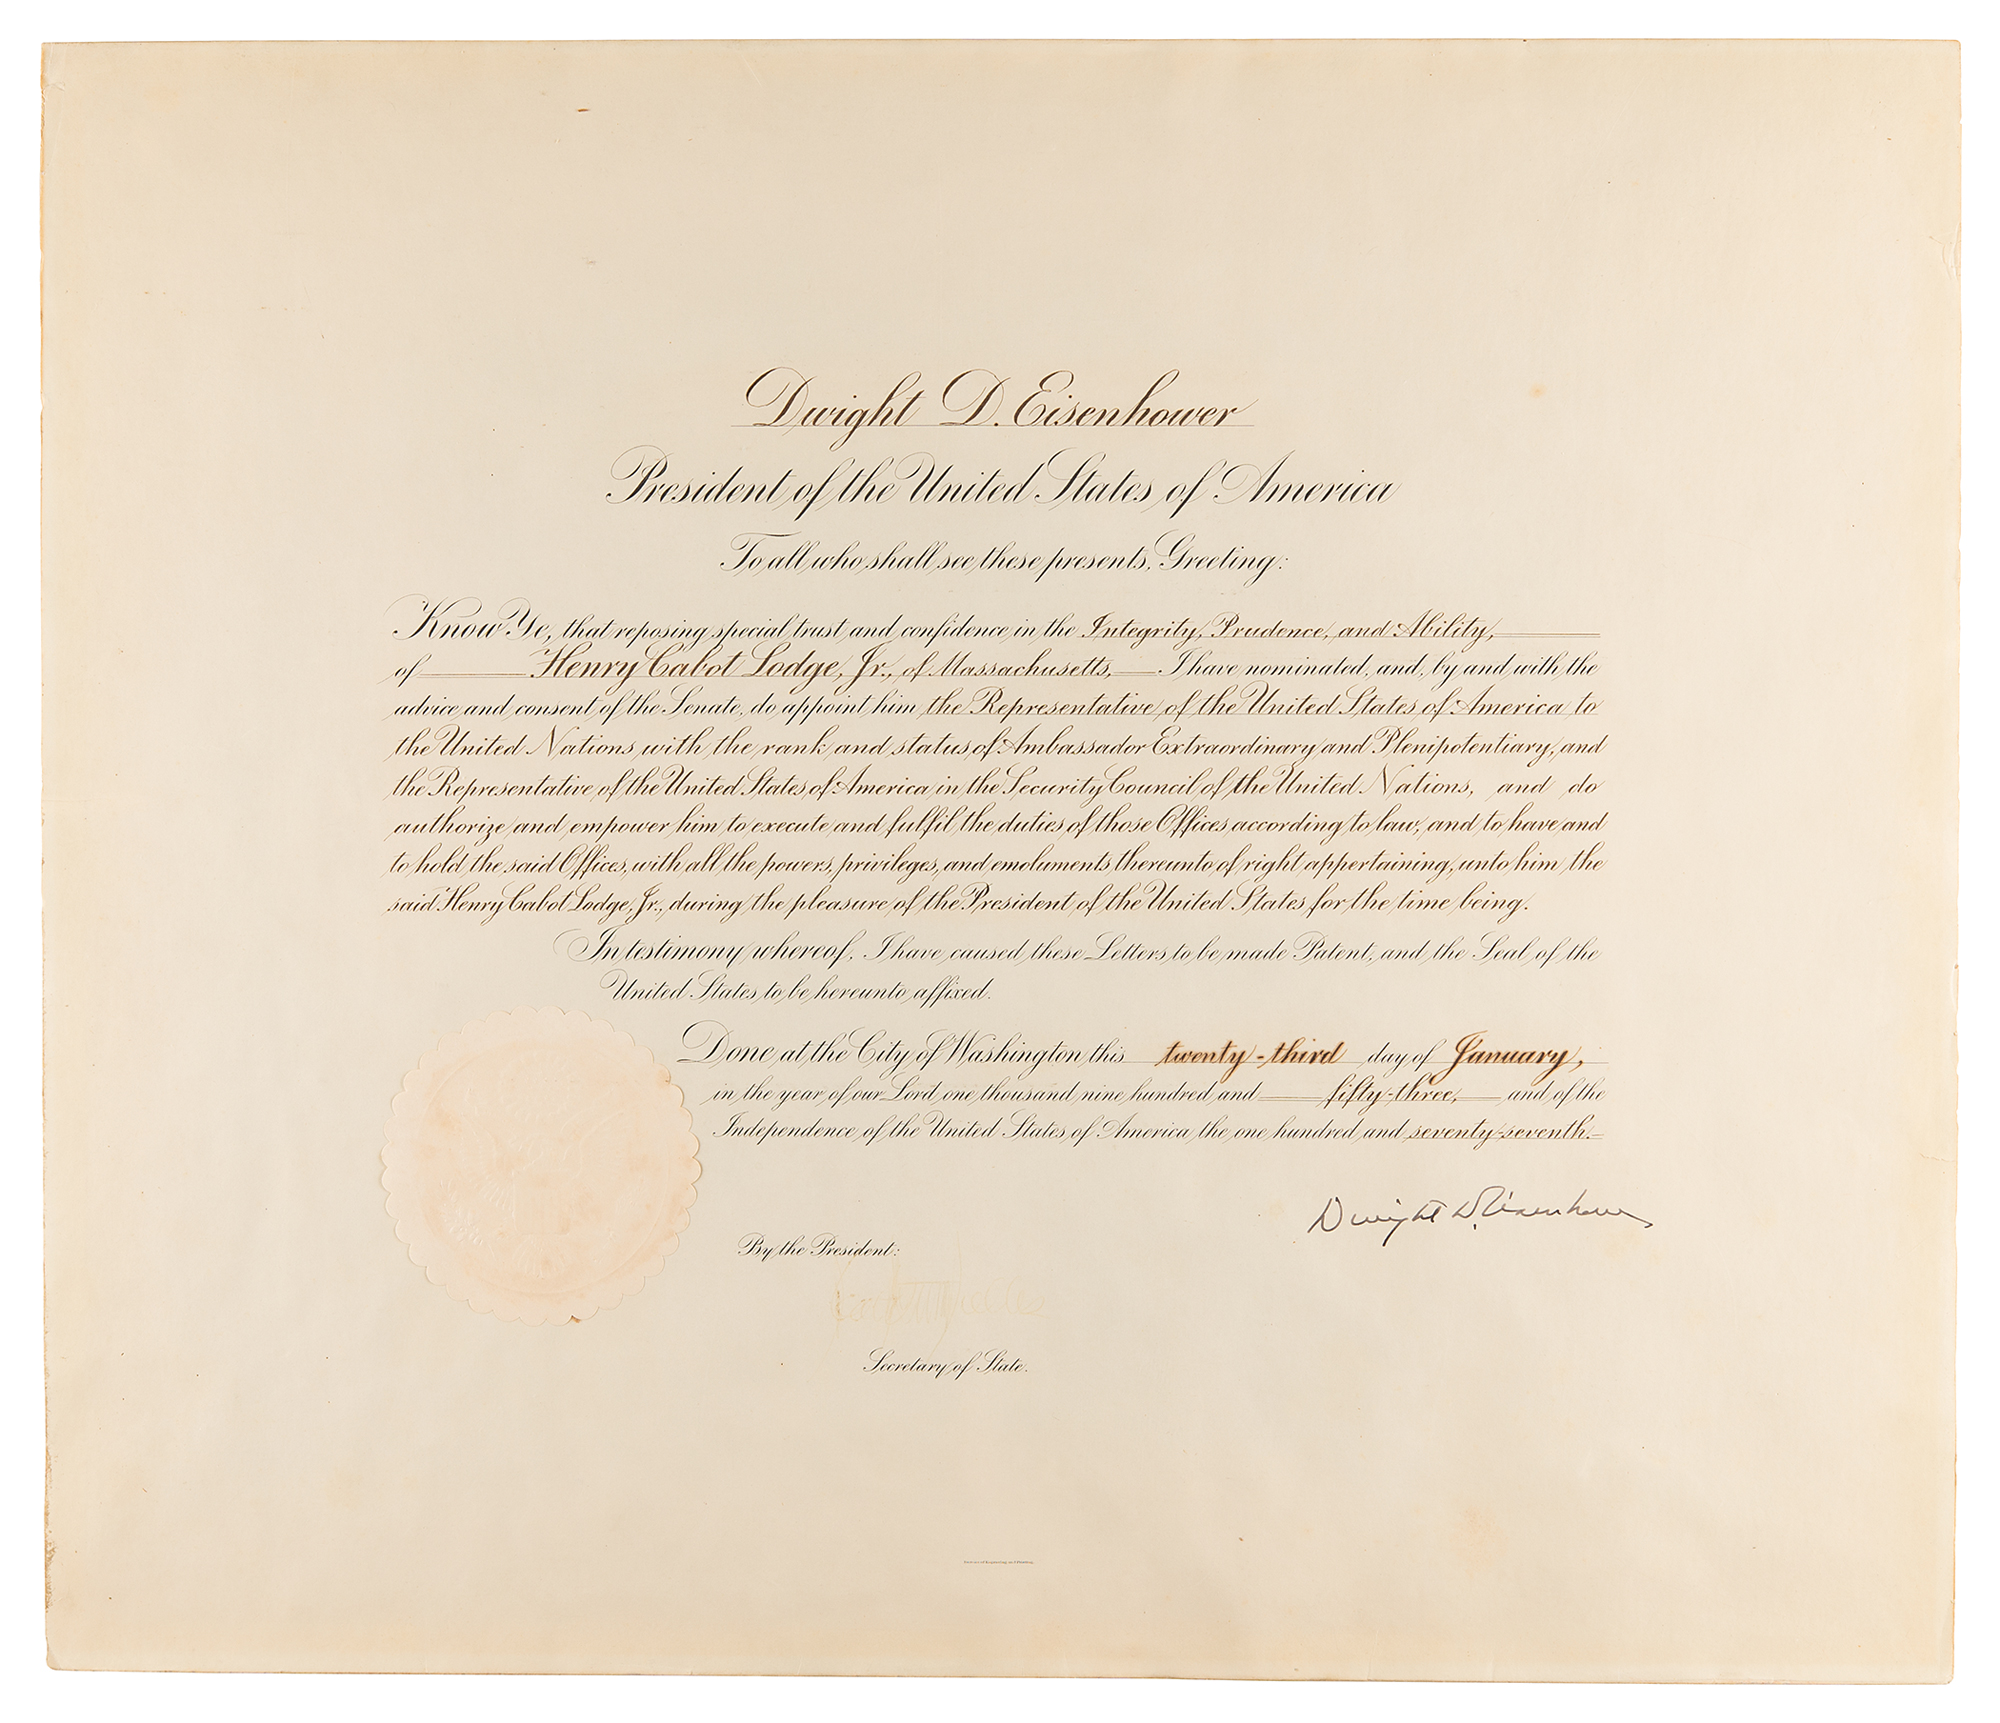 Dwight D. Eisenhower
President of the United States of America
To all who shall see these presents, Greeting:
Know Ye, that reposing special trust and confidence in the Integrity, Prudence, and Ability,
of Henry Cabot Lodge, Jr., of Massachusetts, I have nominated, and, by and with the
advice and consent of the Senate, do appoint him the Representative of the United States of America to
the United Nations with the rank and status of Ambassador Extraordinary and Plenipotentiary, and
the Representative of the United States of America in the Security Council of the United Nations, and do
authorize and empower him to execute and fulfil the duties of those Offices according to law, and to have and
to hold the said Offices, with all the powers, privileges, and emoluments thereunto of right appertaining, unto him the
said Henry Cabot Lodge, Jr., during the pleasure of the President of the United States for the time being.
In testimony whereof, I have caused these Letters to be made Patent, and the Seal of the
United States to be hereunto affixed.
Done at the City of Washington this twenty-third day of January,
in the year of our Lord one thousand nine hundred and fifty-three, and of the
Independence of the United States of America the one hundred and seventy-seventh.
Dwight D. Eisenhower
By the President:
Secretary of State.